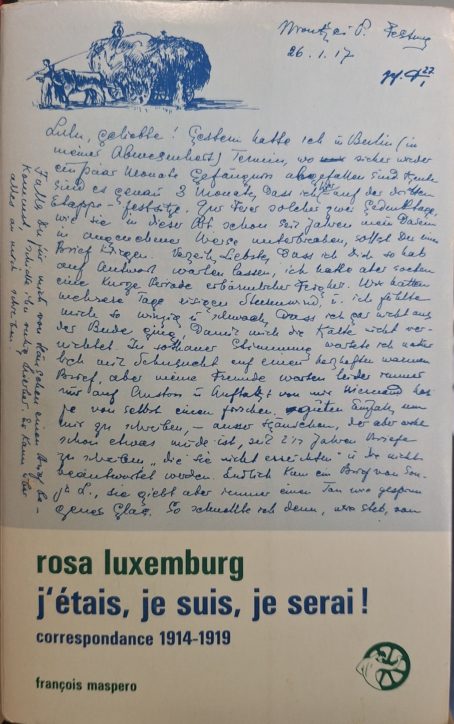 Wronke i. P. Festung
26.1.17
Lulu, geliebte! Gestern hatte ich in Berlin (in
meiner Abwesenheit) Termin, wo sicher wieder
ein paar Monate Gefängnis abgefallen sind. Heute
sind es genau 3 Monate, dass ich hier auf der dritten
Etappe - festsitze. Zur Feier solcher zwei Gedenktage,
wie sie in dieser Art schon seit Jahren mein Dasein
in angenehmer Weise unterbrechen, sollst Du einen
Brief kriegen. Verzeih, Liebste, dass ich dich so hab
auf Antwort warten lassen, ich hatte aber soeben
eine kurze Periode erbärmlicher Feigheit. Wir hatten
mehrere Tage eisigen Sturmwind, u. ich fühlte
mich so winzig u. schwach, dass ich gar nicht aus
der Bude ging, damit mich die Kälte nicht ver-
nichtet. In solcher Stimmung wartete ich natür-
lich mit Sehnsucht auf einen herzhaften warmen
Brief, aber meine Freunde warten leider immer
nur auf Anstoss u. Auftakt von mir. Niemand hat
je von selbst einen frischen guten Einfall, um
mir zu schreiben, - ausser Hänschen, der aber wohl
schon etwas müde ist, seit 2½ Jahren Briefe
zu schreiben, "die sie nicht erreichten" u. die nicht
beantwortet werden. Endlich kam ein Brief von Son-
ja L., sie giebt aber immer einen Ton wie gesprun-
genes Glas. So schnellte ich denn, wie stets, von
Falls Du für mich von Hänschen einen Brief be-
kommst, schicke ihn ruhig hierher. Er kann über
alles an mich schreiben.
rosa luxemburg
j'étais, je suis, je serai !
correspondance 1914-1919
françois maspero